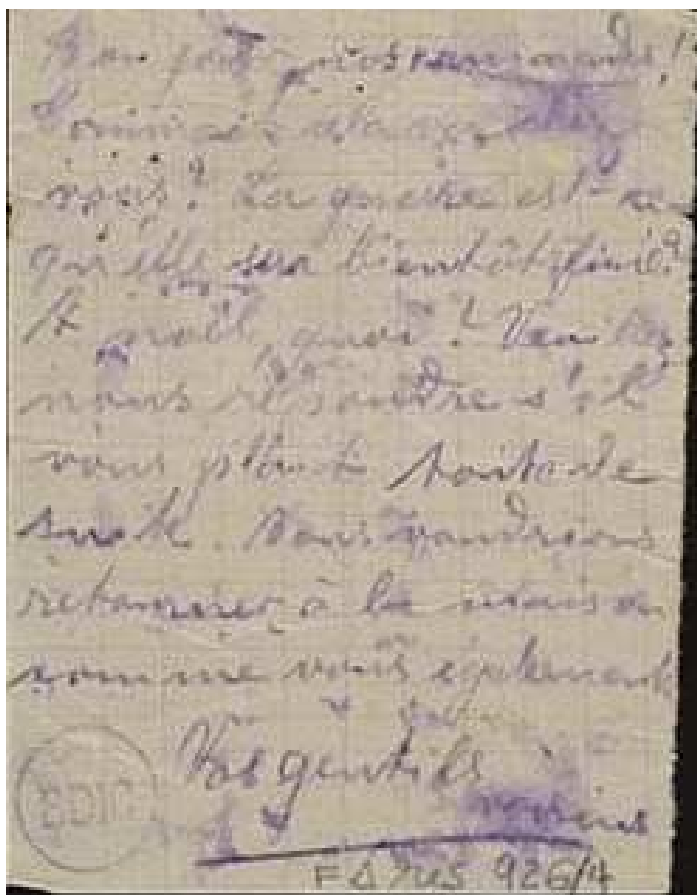 Bon jour, vos
vous? La guerre est-ce
qu'elle sera bientôt finie?
A noël, quoi? Veuillez
nous répondre s'il
vous plaît toute de
suite. Nous voudrions
retourner à la maison
comme vous également
Vos gentils
voisins
BDIC
F∆ 926/4